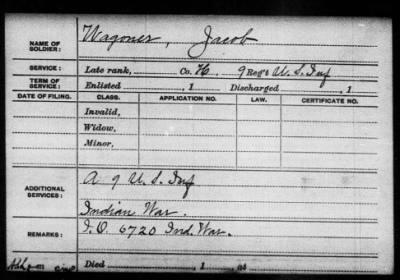 NAME OF SOLDIER: Wagoner, Jacob
SERVICE: Late rank, Co. H, 9 Reg't U. S. Inf
TERM OF SERVICE: Enlisted , 1 Discharged , 1
DATE OF FILING. CLASS. APPLICATION NO. LAW. CERTIFICATE NO.
Invalid,
Widow,
Minor,
ADDITIONAL SERVICES: A 9 U. S. Inf
Indian War.
REMARKS: I. O. 6720 Ind. War.
Died , 1 , at